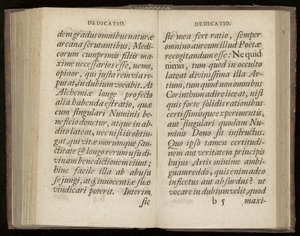 DEDICATIO.
dem gradus omnibus naturæ
arcana scrutantibus, Medi-
corum cumprimis filiis ma-
ximè necessarios esse, nemo,
opinor, qui justa rem via re-
putat, in dubium vocabit. At
Alchemiæ longè profectò
alia habenda est ratio, quæ
cum singulari Numinis be-
neficio donetur, atque in ab-
dito lateat, nec nisi iis obtin-
gat, qui vitæ morumque san-
ctitate & longo rerum usu di-
vinam benedictionem eliciunt;
hinc facile illa ab abusu
sejungi, atq; innocentiæ suæ
vindicari poterit. Interim
sic
DEDICATIO.
sic mea fert ratio, semper
omnino aureum illud Poëtæ
recogitandum esse: Ne quid
nimis, tum quod in occulto
lateat divinissima illa Ar-
tium, tum quod non omnibus
Corinthum adire liceat, nisi
quis forte solidis rationibus
certissimisque experimentis,
aut singulari quodam Nu-
minis Dono sit instructus.
Quo ipso tamen certitudi-
nem aut veritatem principis
hujus Artis minimè ambi-
guam reddo; quis enim adeo
inficetus aut absurdus? ut
quod
vocare in dubium velit,
b 5
maxi-